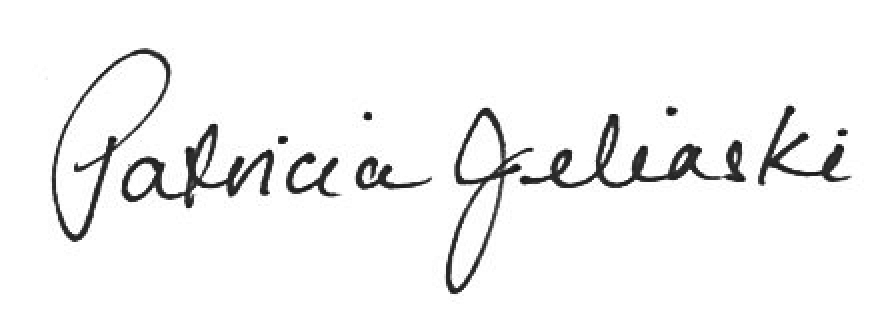 Patricia Jeliaski